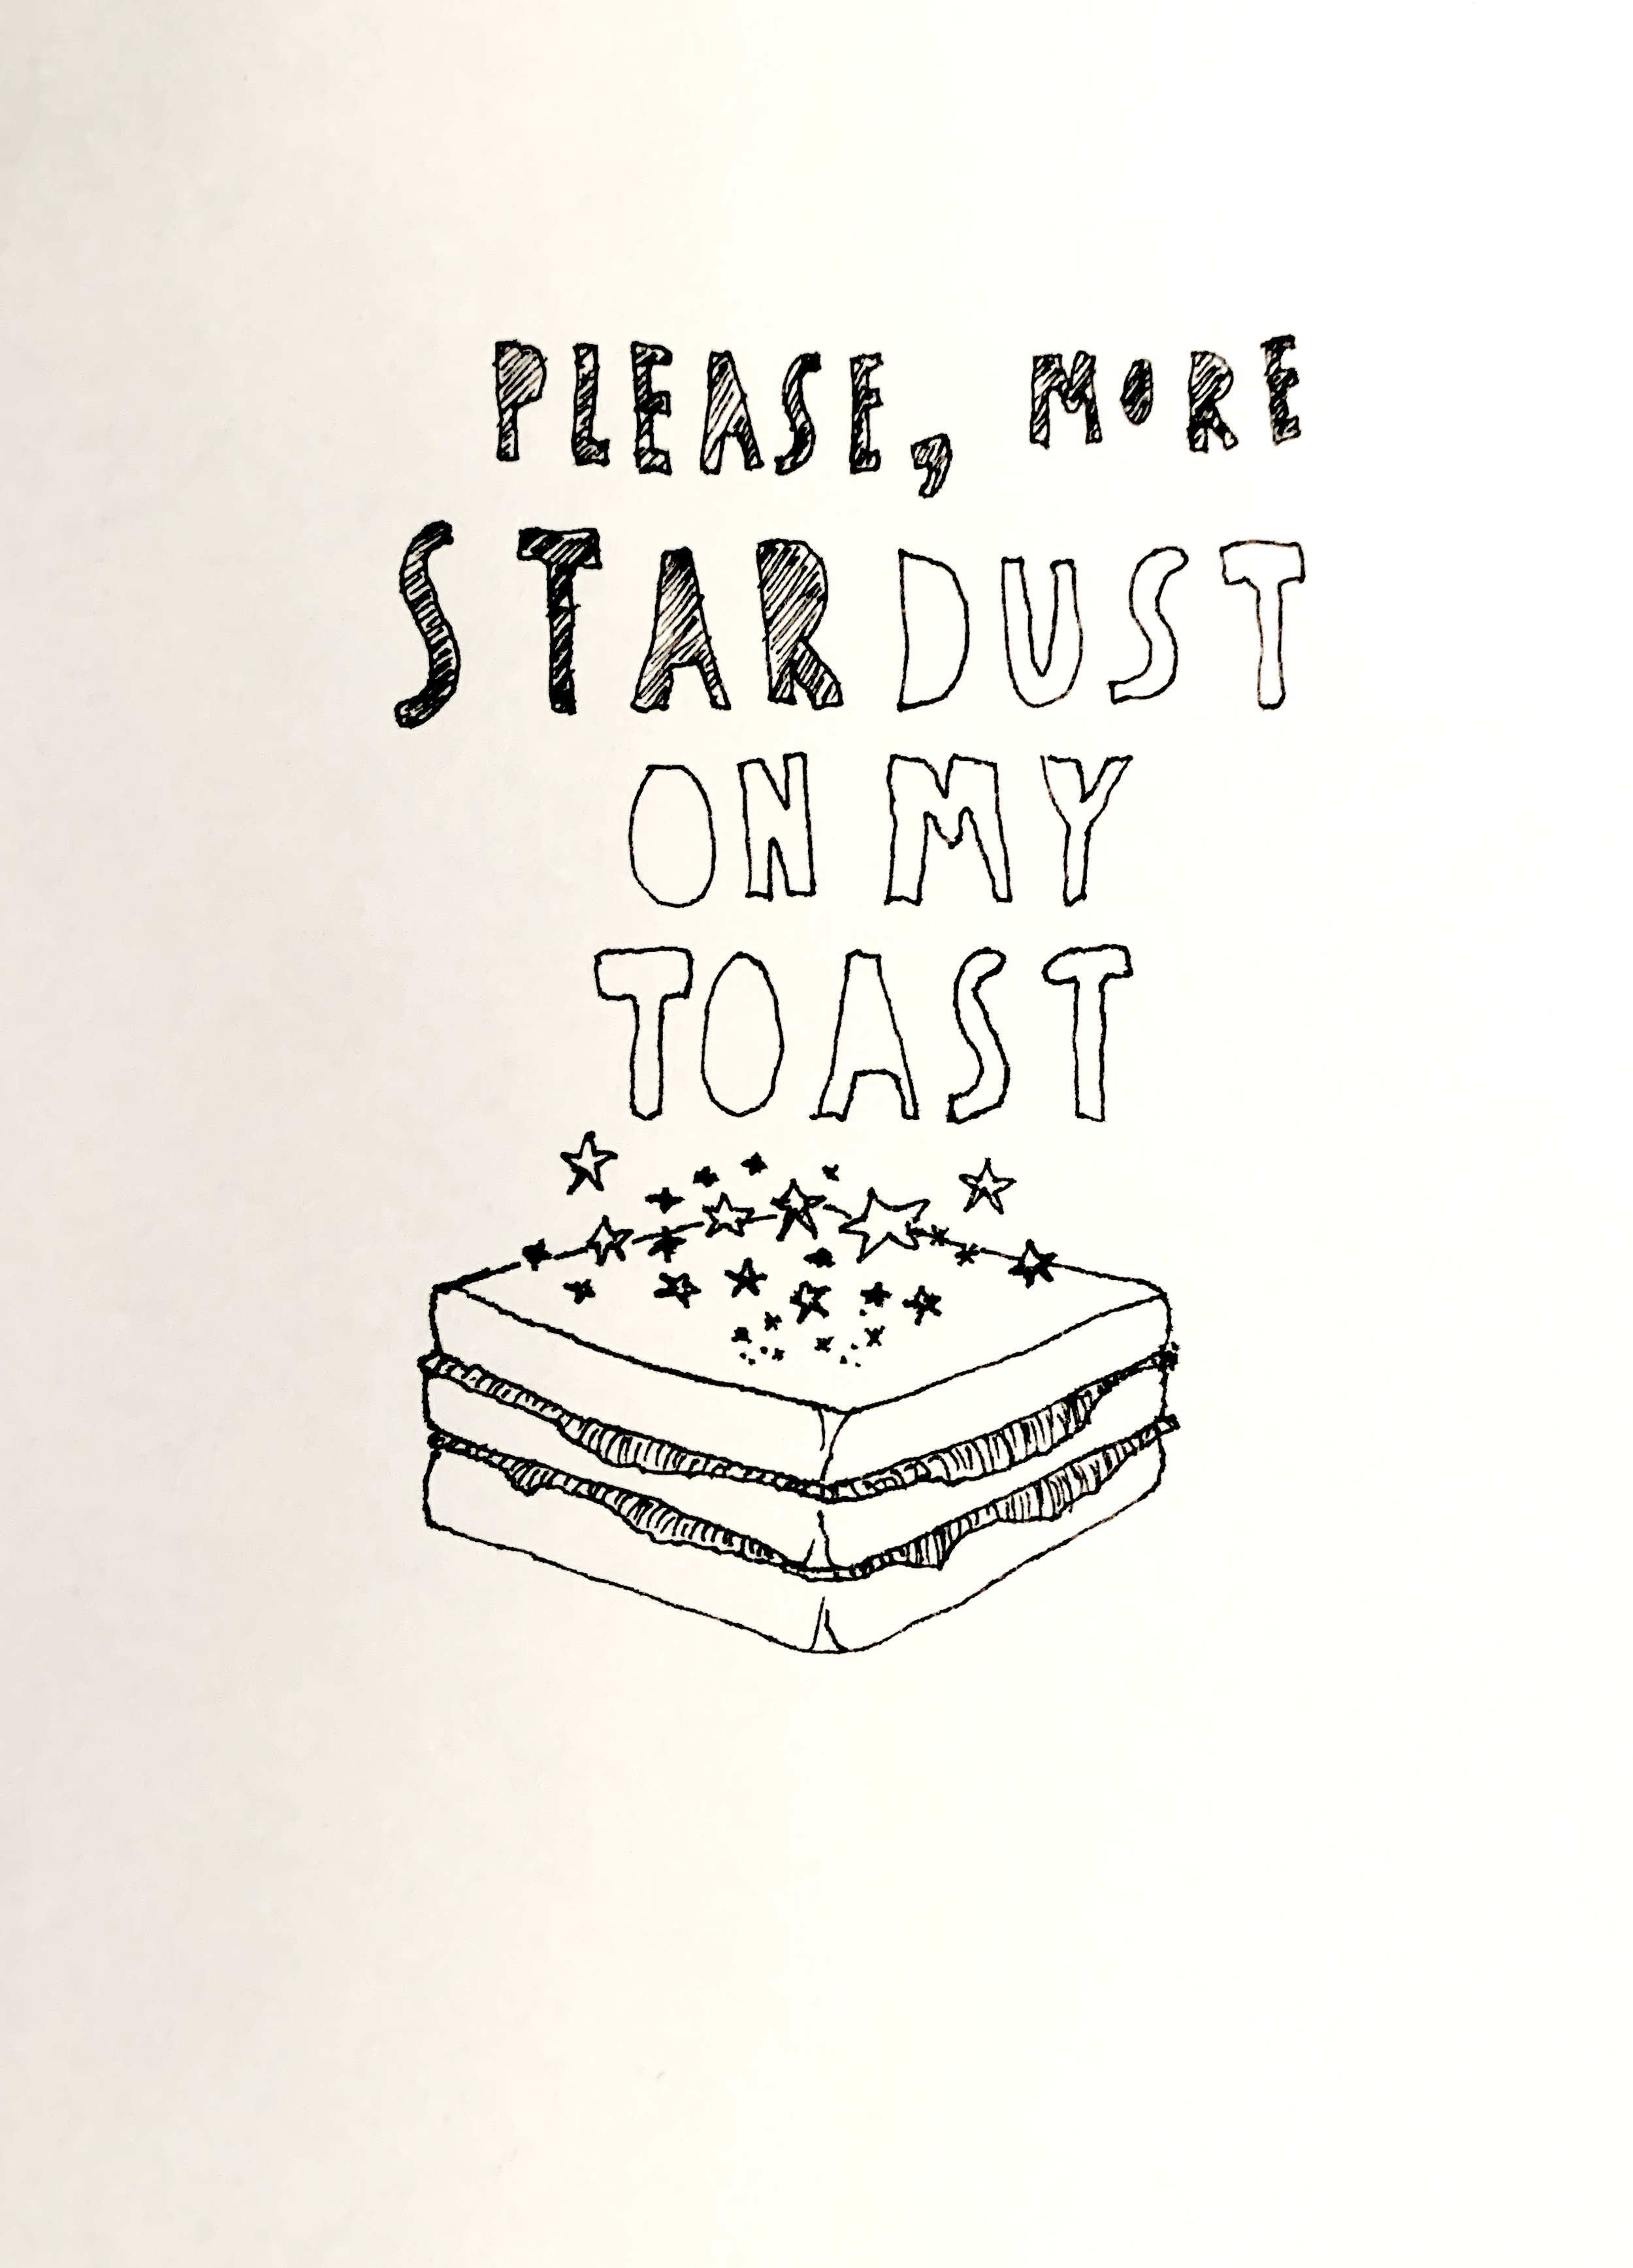 PLEASE, MORE
STARDUST
ON MY
TOAST